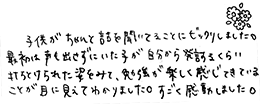 子供がちゃんと話を聞いてることにビックリしました。
最初は声も出さずにいた子が自分から発言するくらい
打ちとけられた姿をみて、勉強が楽しく感じてきている
ことが目に見えてわかりました。すごく感動しました。